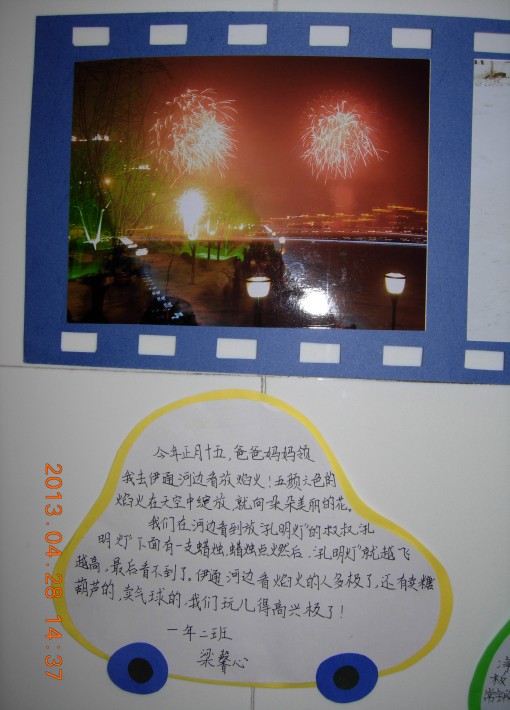 今年正月十五,爸爸妈妈领
我去伊通河边看放焰火!五颜六色的
焰火在天空中绽放,就向朵朵美丽的花。
我们在河边看到放“孔明灯”的叔叔,“孔
明灯”下面有一支蜡烛,蜡烛点燃后,“孔明灯”就越飞
越高,最后看不到了。伊通河边看焰火的人多极了,还有卖糖
葫芦的,卖气球的,我们玩儿得高兴极了!
一年二班
梁馨心
2013.04.28 14:37